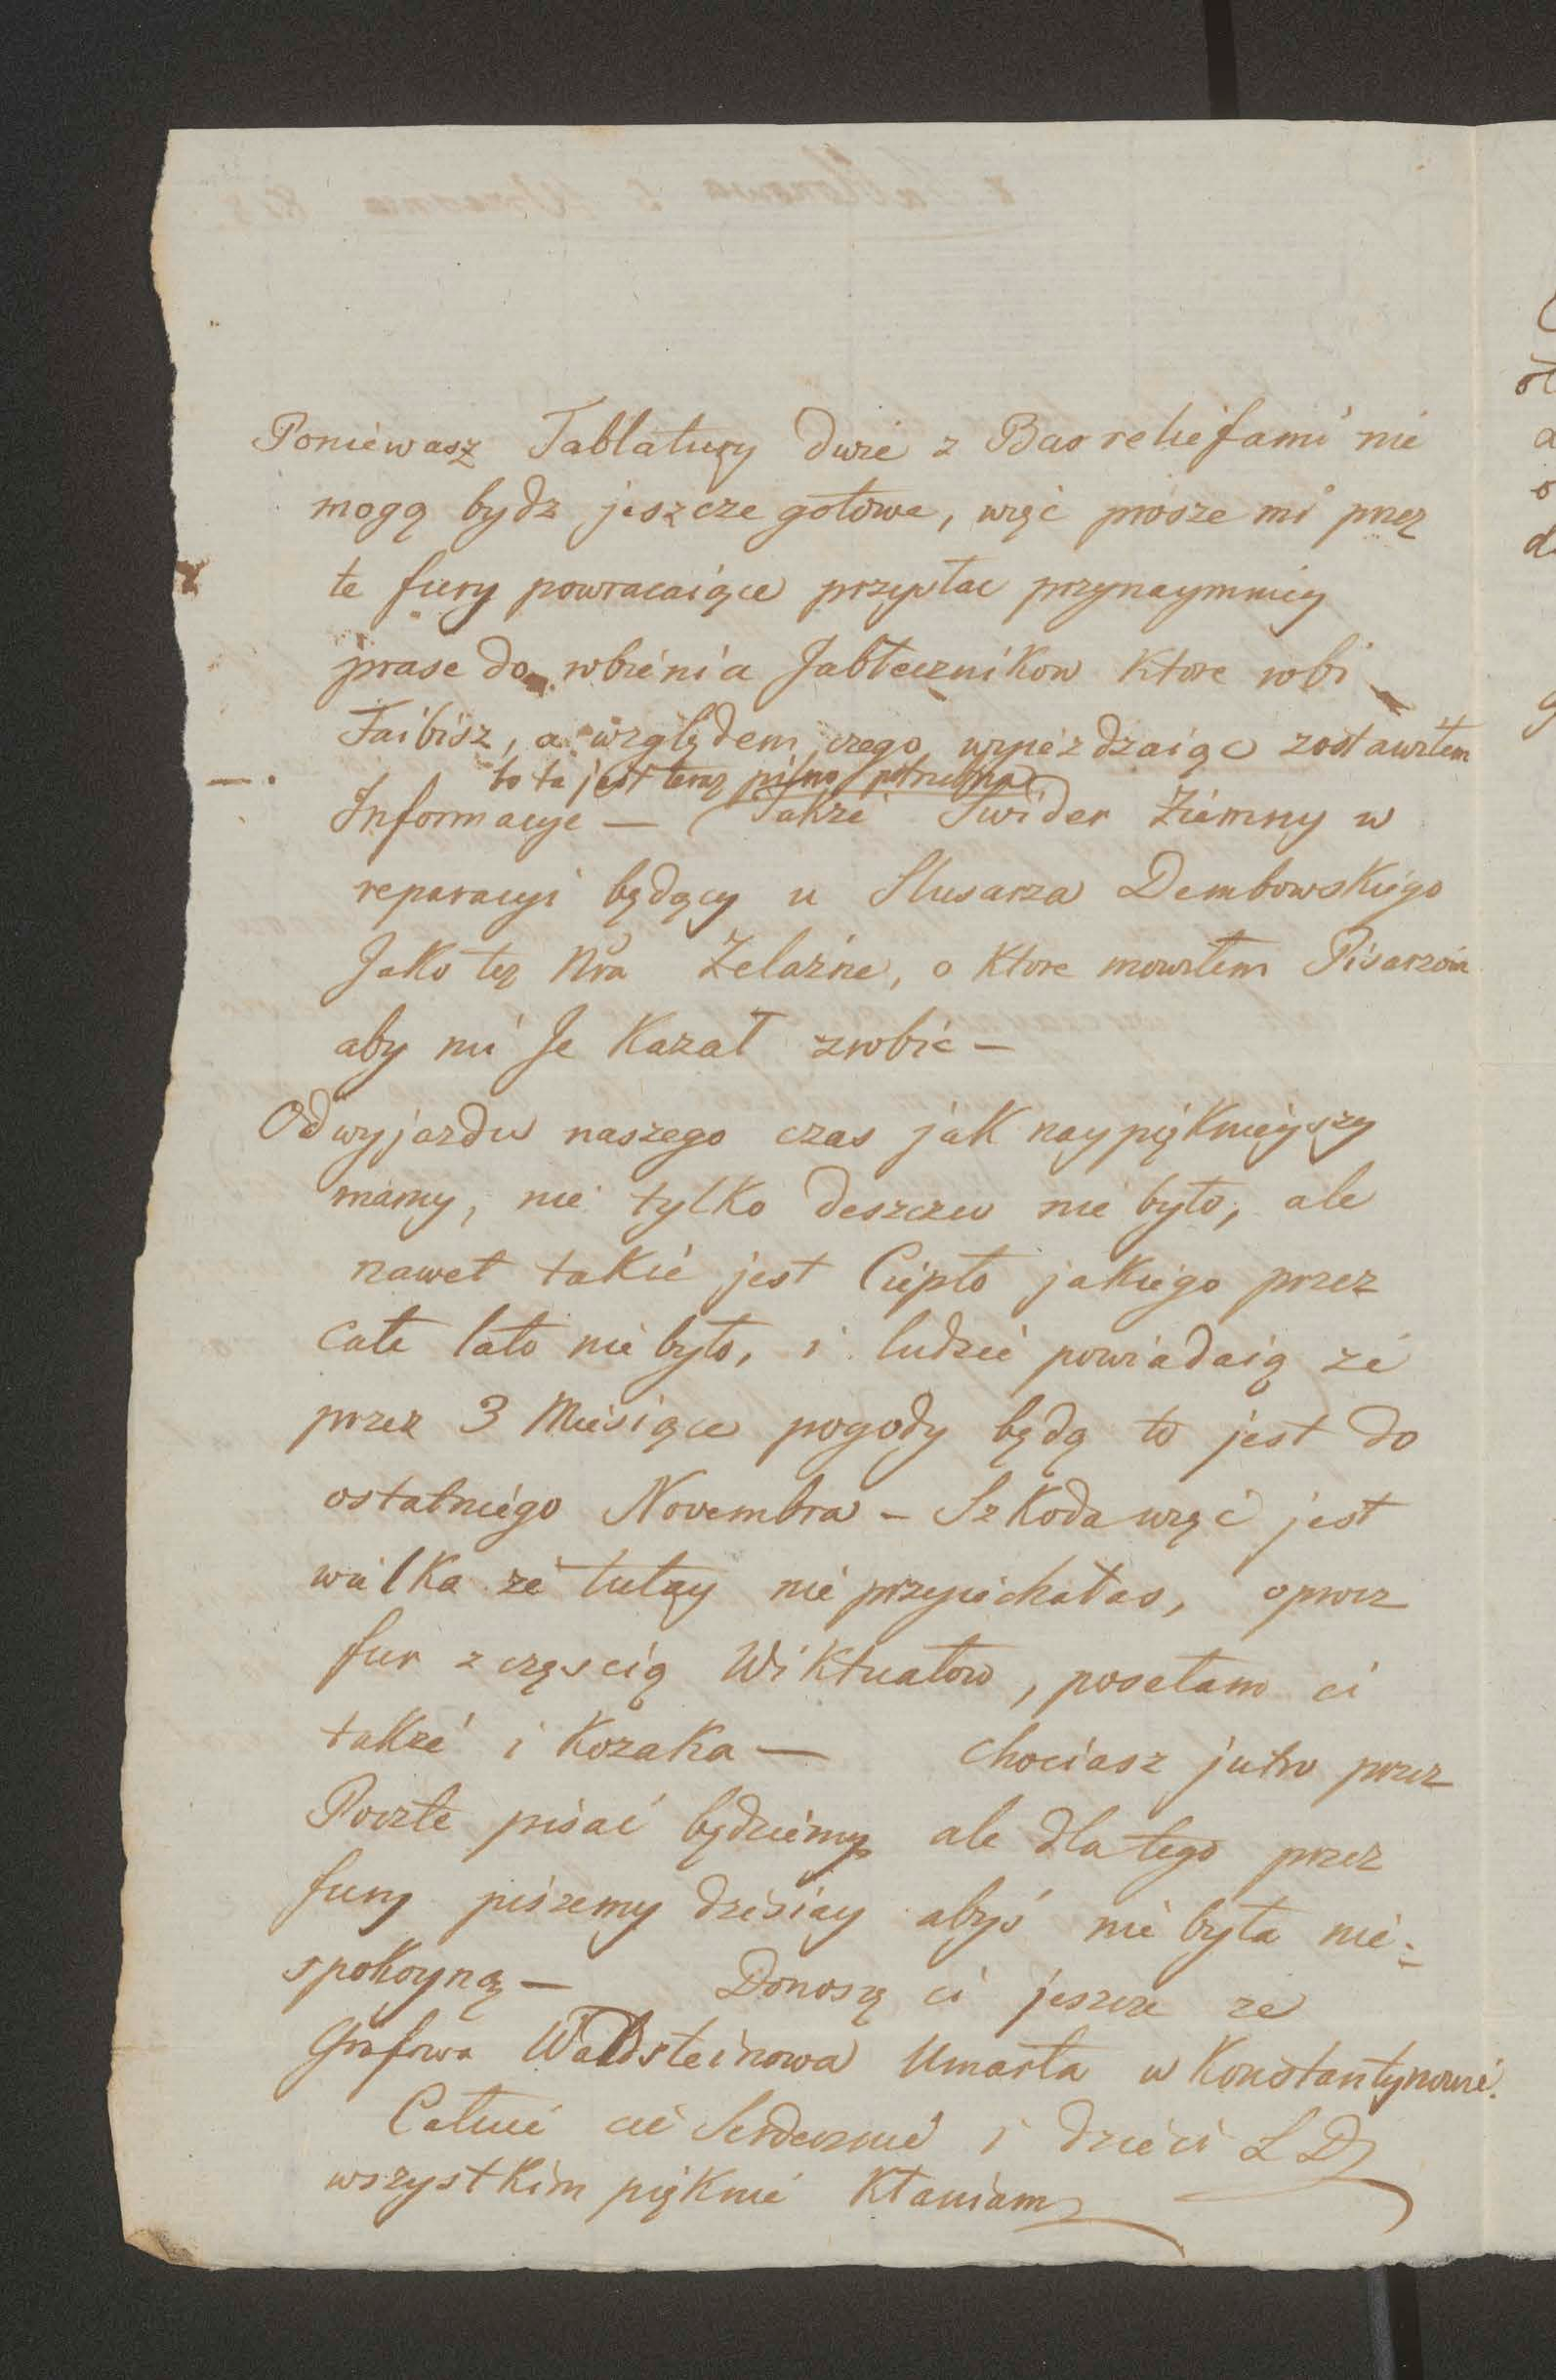 Poniéwasz Tablatury dwie z Bas reliefami nie
mogą bydz jeszcze gotowe, więc prosze mi przez
te fury powracaiące przysłac przynaymniey
prase do robienia Jabłecznikow Ktore robi
Faibisz, a względem czego wyieżdzaiąc zostawiłem
bo ta jest teraz pilno potrzebna
Informacye — Takze Swider Ziemny w
reparacyi będący u Slusarza Dembowskiego
Jako tez Zelazne, o Ktore mowiłem Pisarzowi
aby mi Je Kazał zrobic —
Od wyjazdu naszego czas jak naypiękniéyszy
mamy, nie tylko deszczu nie było, ale
nawet takie jest Ciepło jakiego przez
całe lato nie było, i ludzie powiadaią ze
przez 3 Miesiące pogody będą to jest do
ostatniego Novembra – Szkoda więc jest
wielka ze tutay nie przyiechałas, oprocz
fur z częscią Wiktuałow, posełam ci
takze i Kozaka — chociasz jutro przez
Poczte pisać będziemy ale dla tego przez
fury piszemy dzisiay abyś nie była nie=
spokoyną — Donoszę ci jeszcze ze
Grafowa Waldsteinowa Umarła w Konstantynowie.
Całuié cie Serdecznie i dzieci LD
wszystkim pięknie Kłaniam